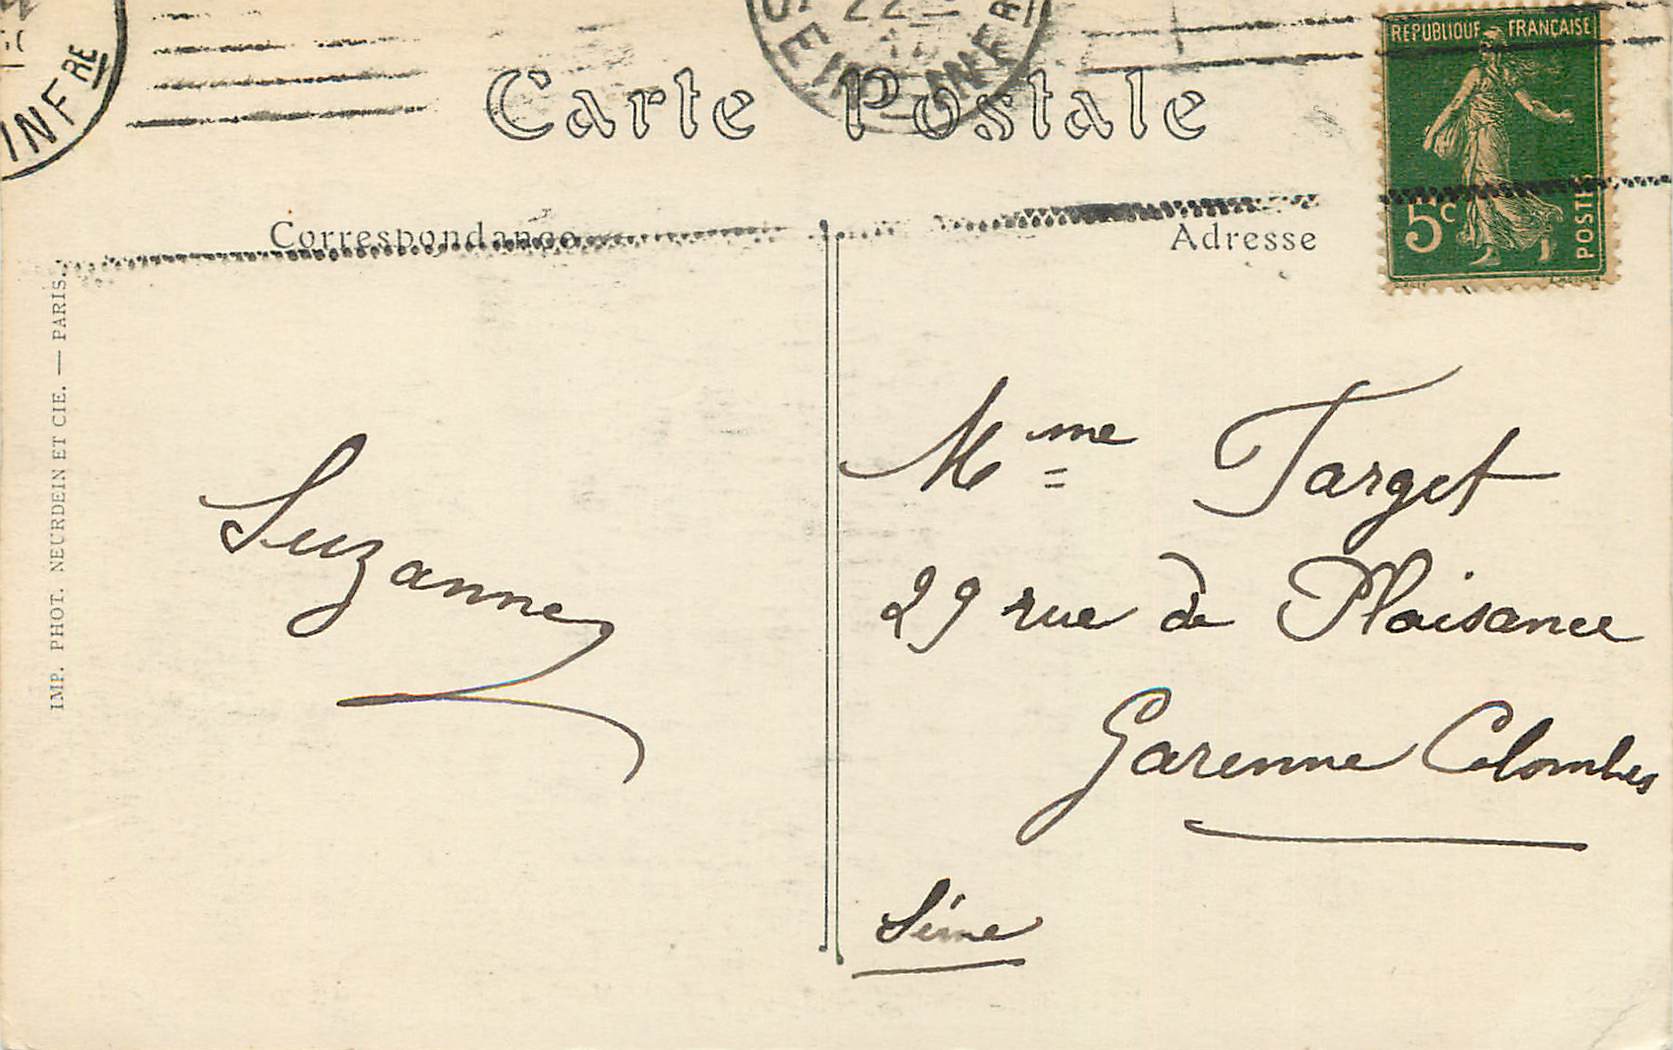 INFRE
22
SEINE INFRE
Carte Postale
RÉPUBLIQUE FRANÇAISE
5c
POSTES
Correspondance
Adresse
IMP. PHOT. NEURDEIN ET CIE. — PARIS.
Suzanne
Mme Target
29 rue de Plaisance
Garenne Colombes
Seine